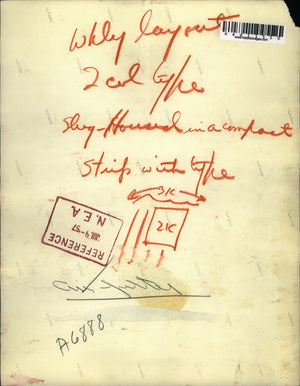 Wkly layout
2 col type
Slug-Housed in a compact
Strip with type
3/c
2/c
REFERENCE
JUL 9-'57
N. E. A.
A6888